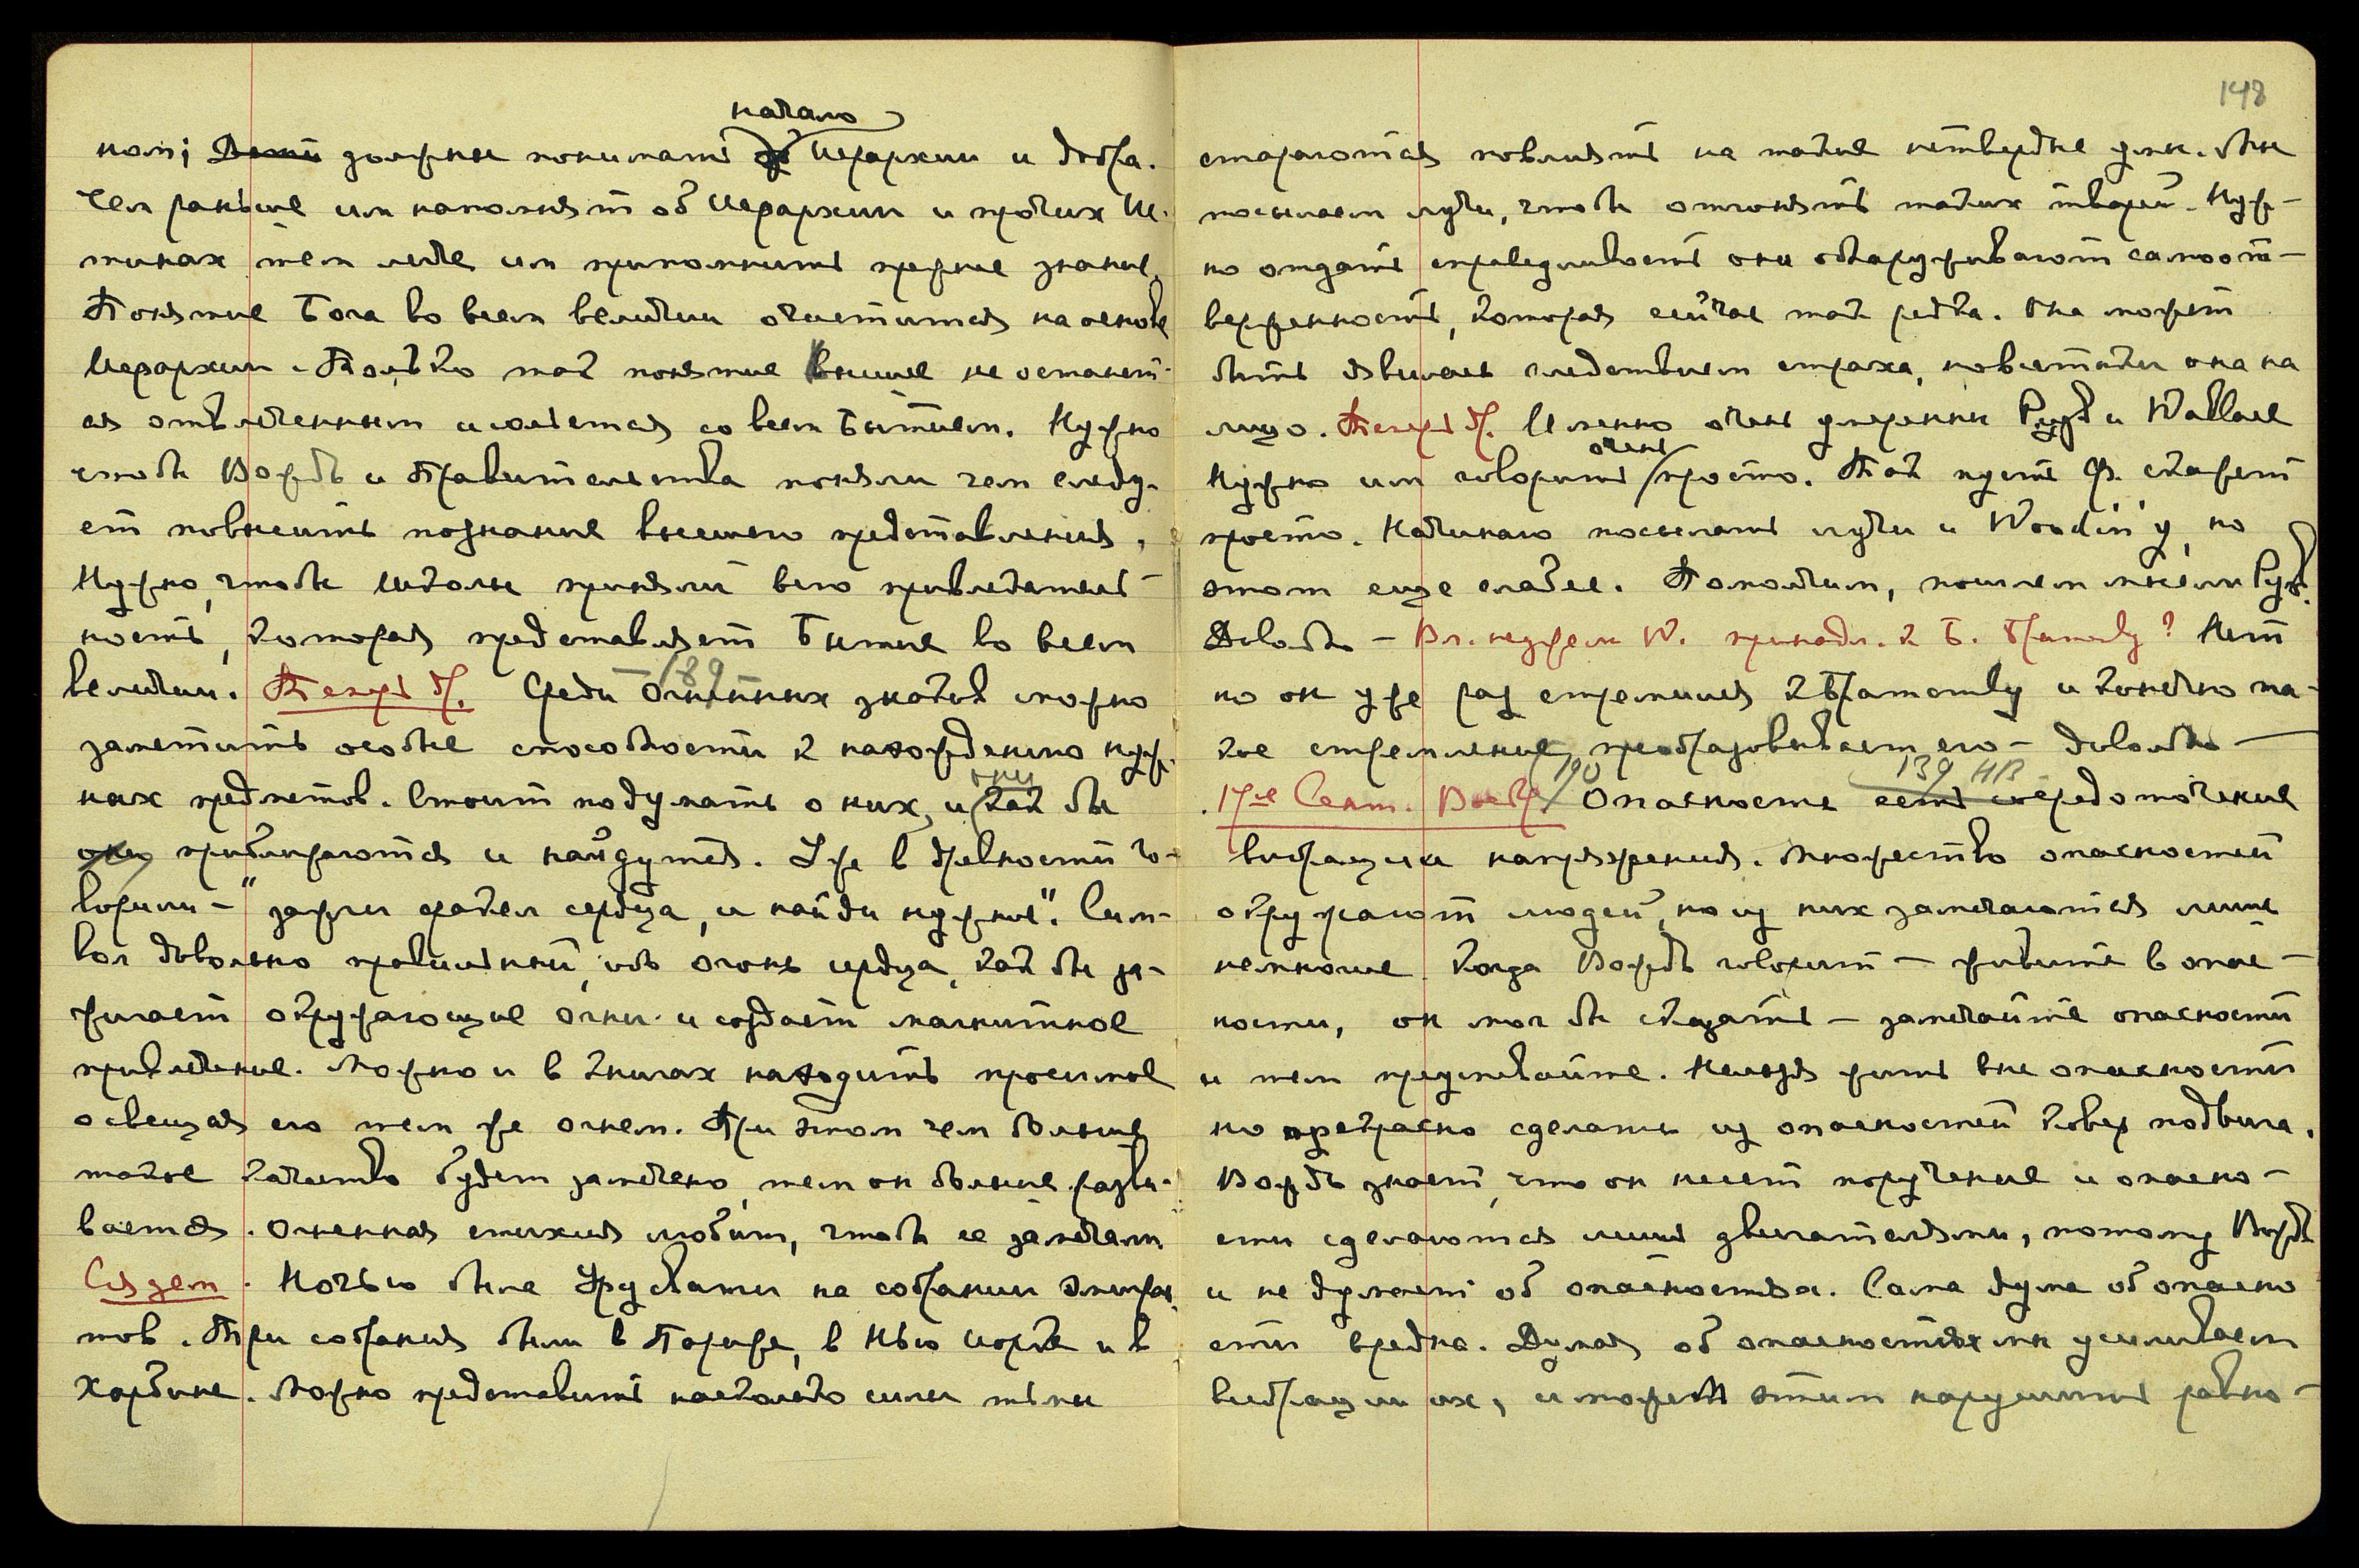 начало
ном; Дети должны понимать об Иерархии и добра.
Чем раньше им напомнят об Иерархии и прочих Ис-
тинах тем легче им припомнить прежние знания.
Понятие Бога во всем величии очистится на основе
Иерархии. Только так понятие высшее не останет-
ся отвлеченным и сольется со всем Бытием. Нужно
чтобы Вождь и Правительства поняли чем следу-
ет повысить познание высшего представления,
Нужно, чтобы школы приняли всю привлекатель-
ность, которая представляет Бытие во всем
— 189 —
величии. Теперь др. Среди Огненных знаков можно
заметить особые способности к нахождению нуж-
они
ных предметов. Стоит подумать о них, и как бы
они приближаются и найдутся. Уже в древности го-
ворили — "зажги факел сердца, и найди нужное". Сим-
вол довольно правильный, ибо огонь сердца, как бы за-
жигает окружающие огни и создает магнитное
привлечение. Можно и в книгах находить просимое
освещая его тем же огнем. При этом чем больше
такое качество будет замечено, тем он больше разви-
вается. Огненная стихия любит, чтобы ее замечали.
Сядем. Ночью была Урусвати на собрании Эмигран-
тов. Три собрания были в Париже, в Нью Иорке и в
Харбине. Можно представить насколько силы тьмы
148
стараются повлиять на такие нетвердые умы. Мы
посылаем лучи, чтобы отгонять таких тварей. Нуж-
но отдать справедливость они обнаруживают самоот-
верженность, которая сейчас так редка. Она может
быть явилась следствием страха, но все таки она на
лицо. Теперь др. Именно очень умеренны Рузв и Wallace
очень
Нужно им говорить просто. Так пусть Ф. скажет
просто. Начинаю посылать лучи и Woodin'у, но
этот еще слабее. Помолчим, пошлем мысли Рузв.
Довольно — Вл. неужели W. принадл. к Б. Братству? Нет
но он уже раз стремился к Братству и конечно та-
кое стремление преобразовывает его — довольно —
190 139 НВ
17ое Сент. Воскр. Опасность есть сосредоточение
вибрации напряжения. Множество опасностей
окружают людей, но из них замечаются лишь
немногие. Когда Вождь говорит — живите в опас-
ности, он мог бы сказать — замечайте опасности
и тем преуспевайте. Нельзя жить вне опасности
но прекрасно сделать из опасностей ковер подвига.
Вождь знает, что он несет поручение и опасно-
сти сделаются лишь двигателями, потому Вождь
и не думает об опасностях. Сама дума об опасно
сти вредна. Думая об опасностях мы усиливаем
вибрации их, и может этим нарушить равно-